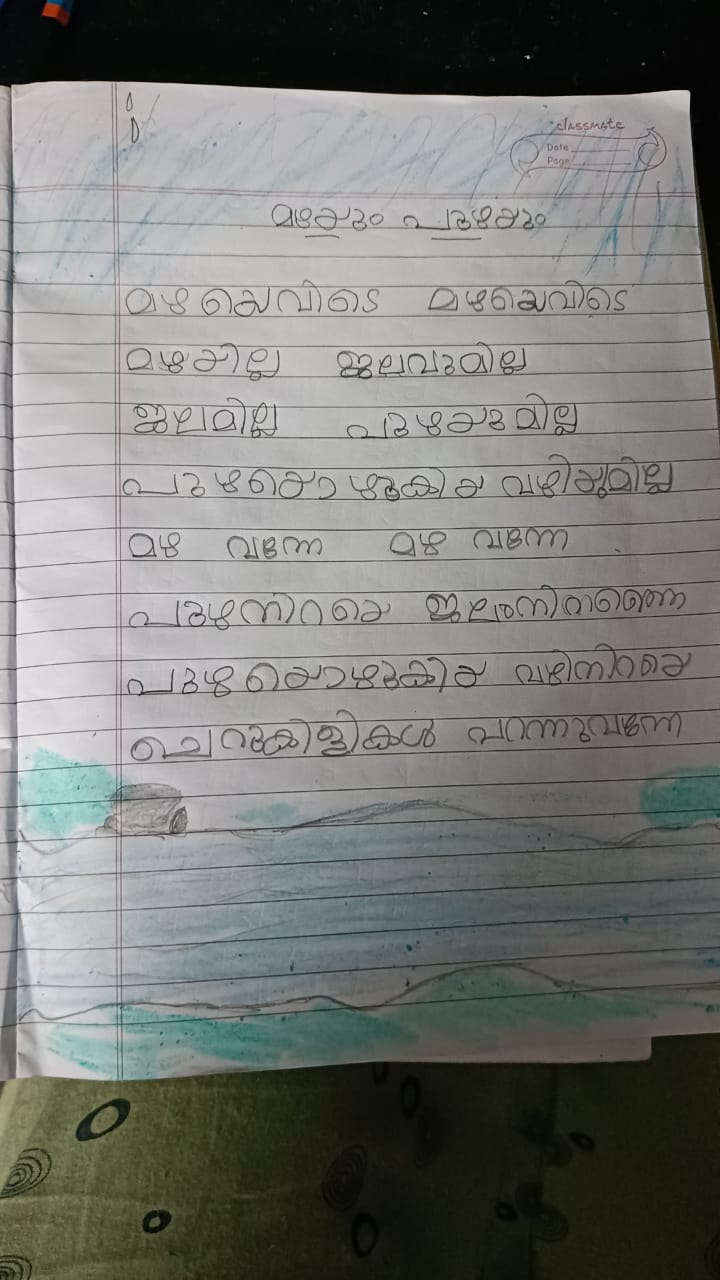 classmate
Date
Page
മഴയും പുഴയും
മഴയെവിടെ മഴയെവിടെ
മഴയില്ല ജലവുമില്ല
ജലമില്ല പുഴയുമില്ല
പുഴയൊഴുകിയ വഴിയുമില്ല
മഴ വന്നേ മഴ വന്നേ
പുഴനിറയെ ജലംനിറഞ്ഞെ
പുഴയൊഴുകിയ വഴിനിറയെ
ചെറുകിളികൾ പറന്നുവന്നേ